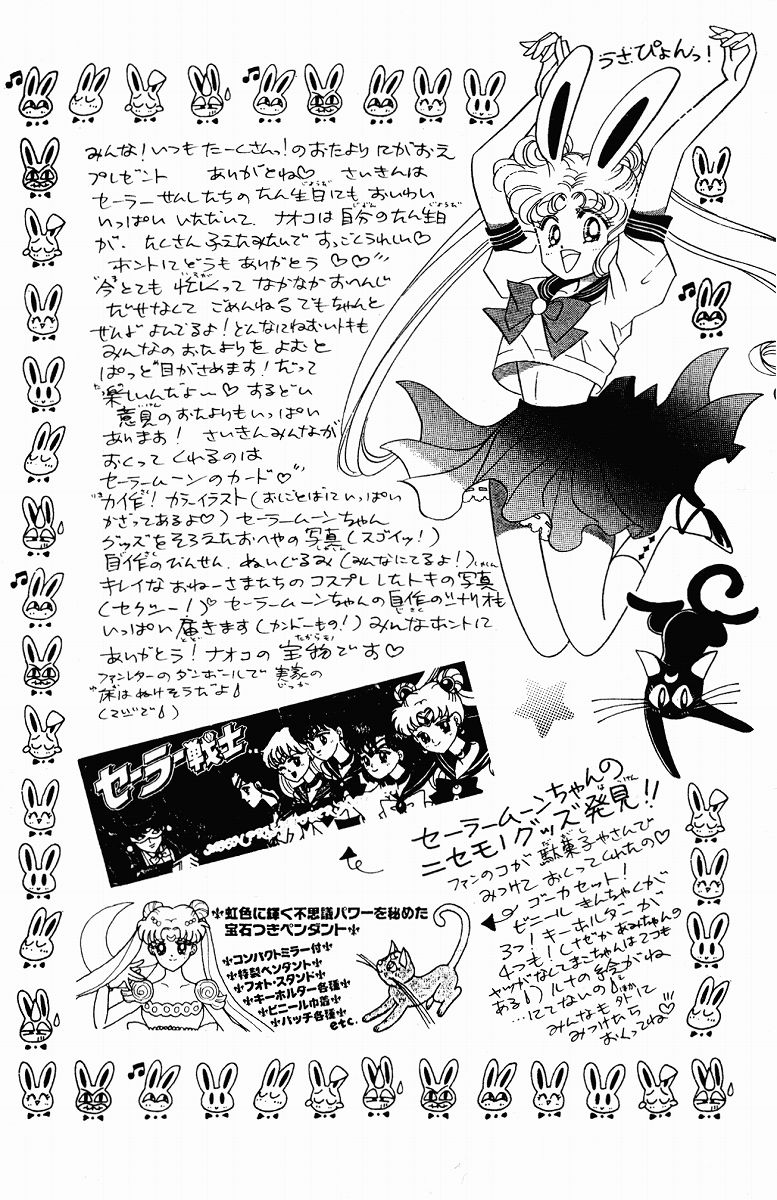 うさぴょんっ!
みんな!いつもたーくさんっ!のおたよりにがおえ
プレゼント ありがとね♡ さいきんは
セーラーせんしたちのたん生日にもおいわい
いっぱいいただいて、ナオコは自分のたん生日
が、たくさんふえたみたいですっごくうれしい♡
ホントにどうもありがとう♡♡
今とても忙しくってなかなかおへんじ
だせなくてごめんねでもちゃんと
ぜんぶよんでるよ!どんなにねむいトキも
みんなのおたよりをよむと
ぱっと目がさめます!だって
楽しいんだよー♡するどい
意見のおたよりもいっぱい
あいまあ!さいきんみんなが
おくってくれるのは
セーラームーンのカード♡
力作!カラーイラスト(おしごとばにいっぱい
かざってあるよ♡)セーラームーンちゃん
グッズをそろえたおへやの写真(スゴイッ!)
自作のびんせん、ぬいぐるみ(みんなにてるよ!)
キレイなおねーさまたちのコスプレしたトキの写真
(セクシー!)♡セーラームーンちゃんの自作のシナリオも
いっぱい届きます(カンドーもの!)みんなホントに
ありがとう!ナオコの宝物です♡
ファンレターのダンボールで実家の
床はぬけそうだよ♪
(マジで♪)
セーラー戦士
セーラームーンちゃんの
ニセモノグッズ発見!!
ファンのコが駄菓子やさんで
みつけておくってくれたの♡
ゴーカセット!
ビニールきんちゃくが
3つ!キーホルダーが
4つも!(なぜかあみちゃんの
ヤツがなくてまこちゃんは2つも
ある♪)ルナの絵がね
…にてないの♪ほか
みんなも外にて
みつけたら
おくってね
✣虹色に輝く不思議パワーを秘めた
宝石つきペンダント✣
✣コンパクトミラー付✣
✣特製ペンダント✣
✣フォト・スタンド✣
✣キーホルダー各種✣
✣ビニール巾着✣
✣バッチ各種✣
etc.